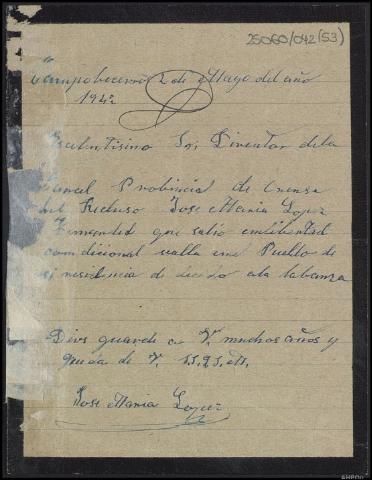 25060/042(53)
Campobecerros 2 de Mayo del año
1942
Sr Director dela
Carcel Probincial de Orense
del Recluso Jose Maria Lopez
que salio enlibertad
condicional valla enel Pueblo de
si residencia de dicado ala labranza
Dios guarde a V. muchos años y
queda de V.
Jose Maria Lopez